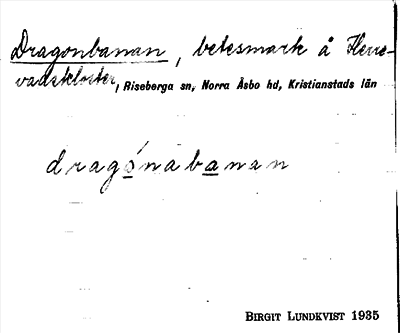 Dragonbanan, betesmark å Herre-
vadskloster, Riseberga sn, Norra Åsbo hd, Kristianstads län
dragónabanan
BIRGIT LUNDKVIST 1935